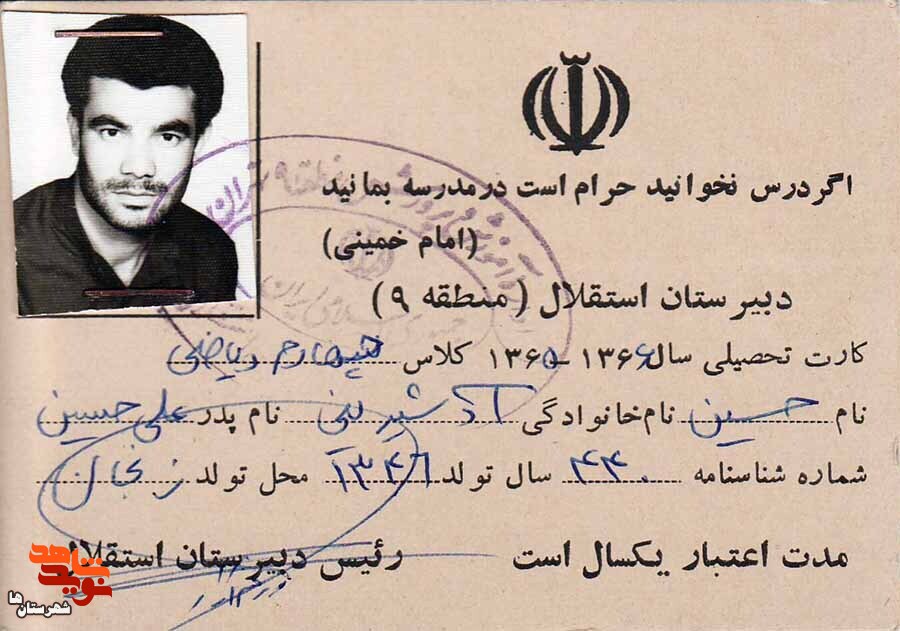 اگر درس نخوانید حرام است در مدرسه بمانید
(امام خمینی)
دبیرستان استقلال (منطقه ۹)
کارت تحصیلی سال ۱۳۶۶ - ۱۳۶۵ کلاس چهارم ریاضی
نام حسین نام‌خانوادگی شیرینی نام پدر علی حسین
شماره شناسنامه ۴۴۰ سال تولد ۱۳۴۶ محل تولد زنجان
مدت اعتبار یکسال است
رئیس دبیرستان استقلال
نوید شاهد
شهرستان‌ها